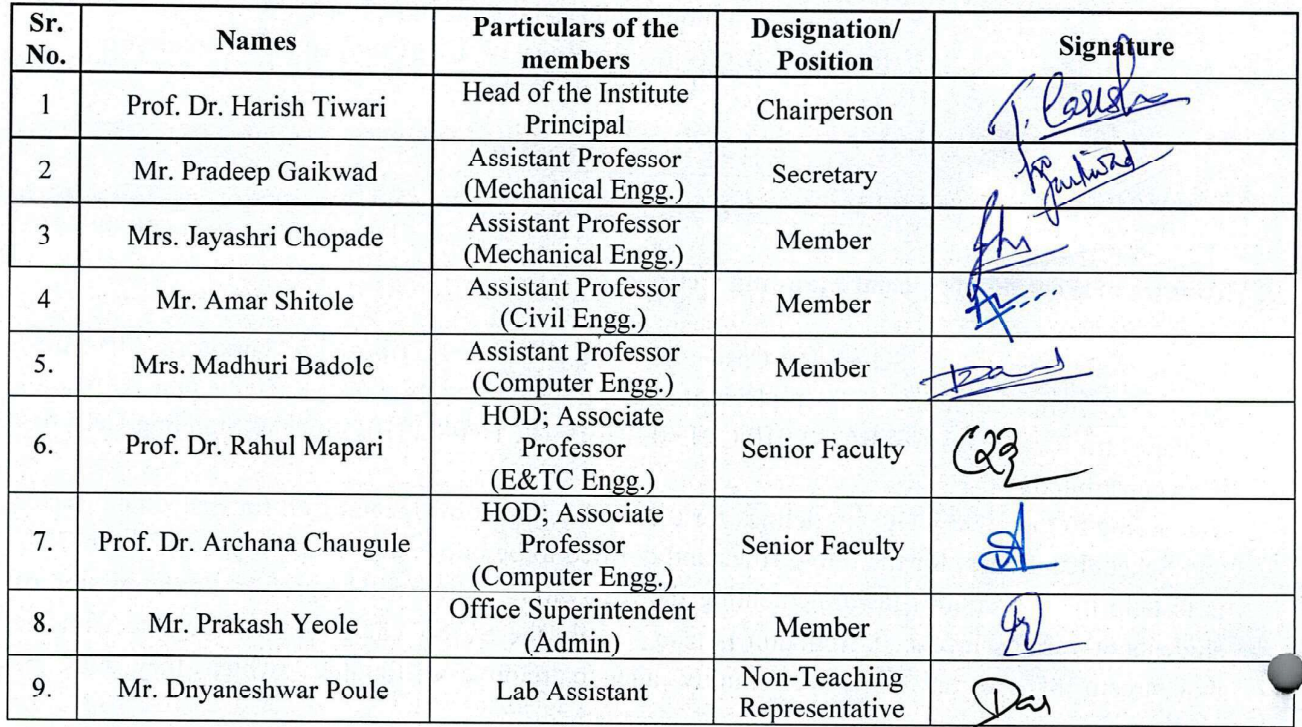 Sr. No. Names Particulars of the members Designation/ Position Signature
1 Prof. Dr. Harish Tiwari Head of the Institute Principal Chairperson
2 Mr. Pradeep Gaikwad Assistant Professor (Mechanical Engg.) Secretary
3 Mrs. Jayashri Chopade Assistant Professor (Mechanical Engg.) Member
4 Mr. Amar Shitole Assistant Professor (Civil Engg.) Member
5. Mrs. Madhuri Badole Assistant Professor (Computer Engg.) Member
6. Prof. Dr. Rahul Mapari HOD; Associate Professor (E&TC Engg.) Senior Faculty
7. Prof. Dr. Archana Chaugule HOD; Associate Professor (Computer Engg.) Senior Faculty
8. Mr. Prakash Yeole Office Superintendent (Admin) Member
9. Mr. Dnyaneshwar Poule Lab Assistant Non-Teaching Representative